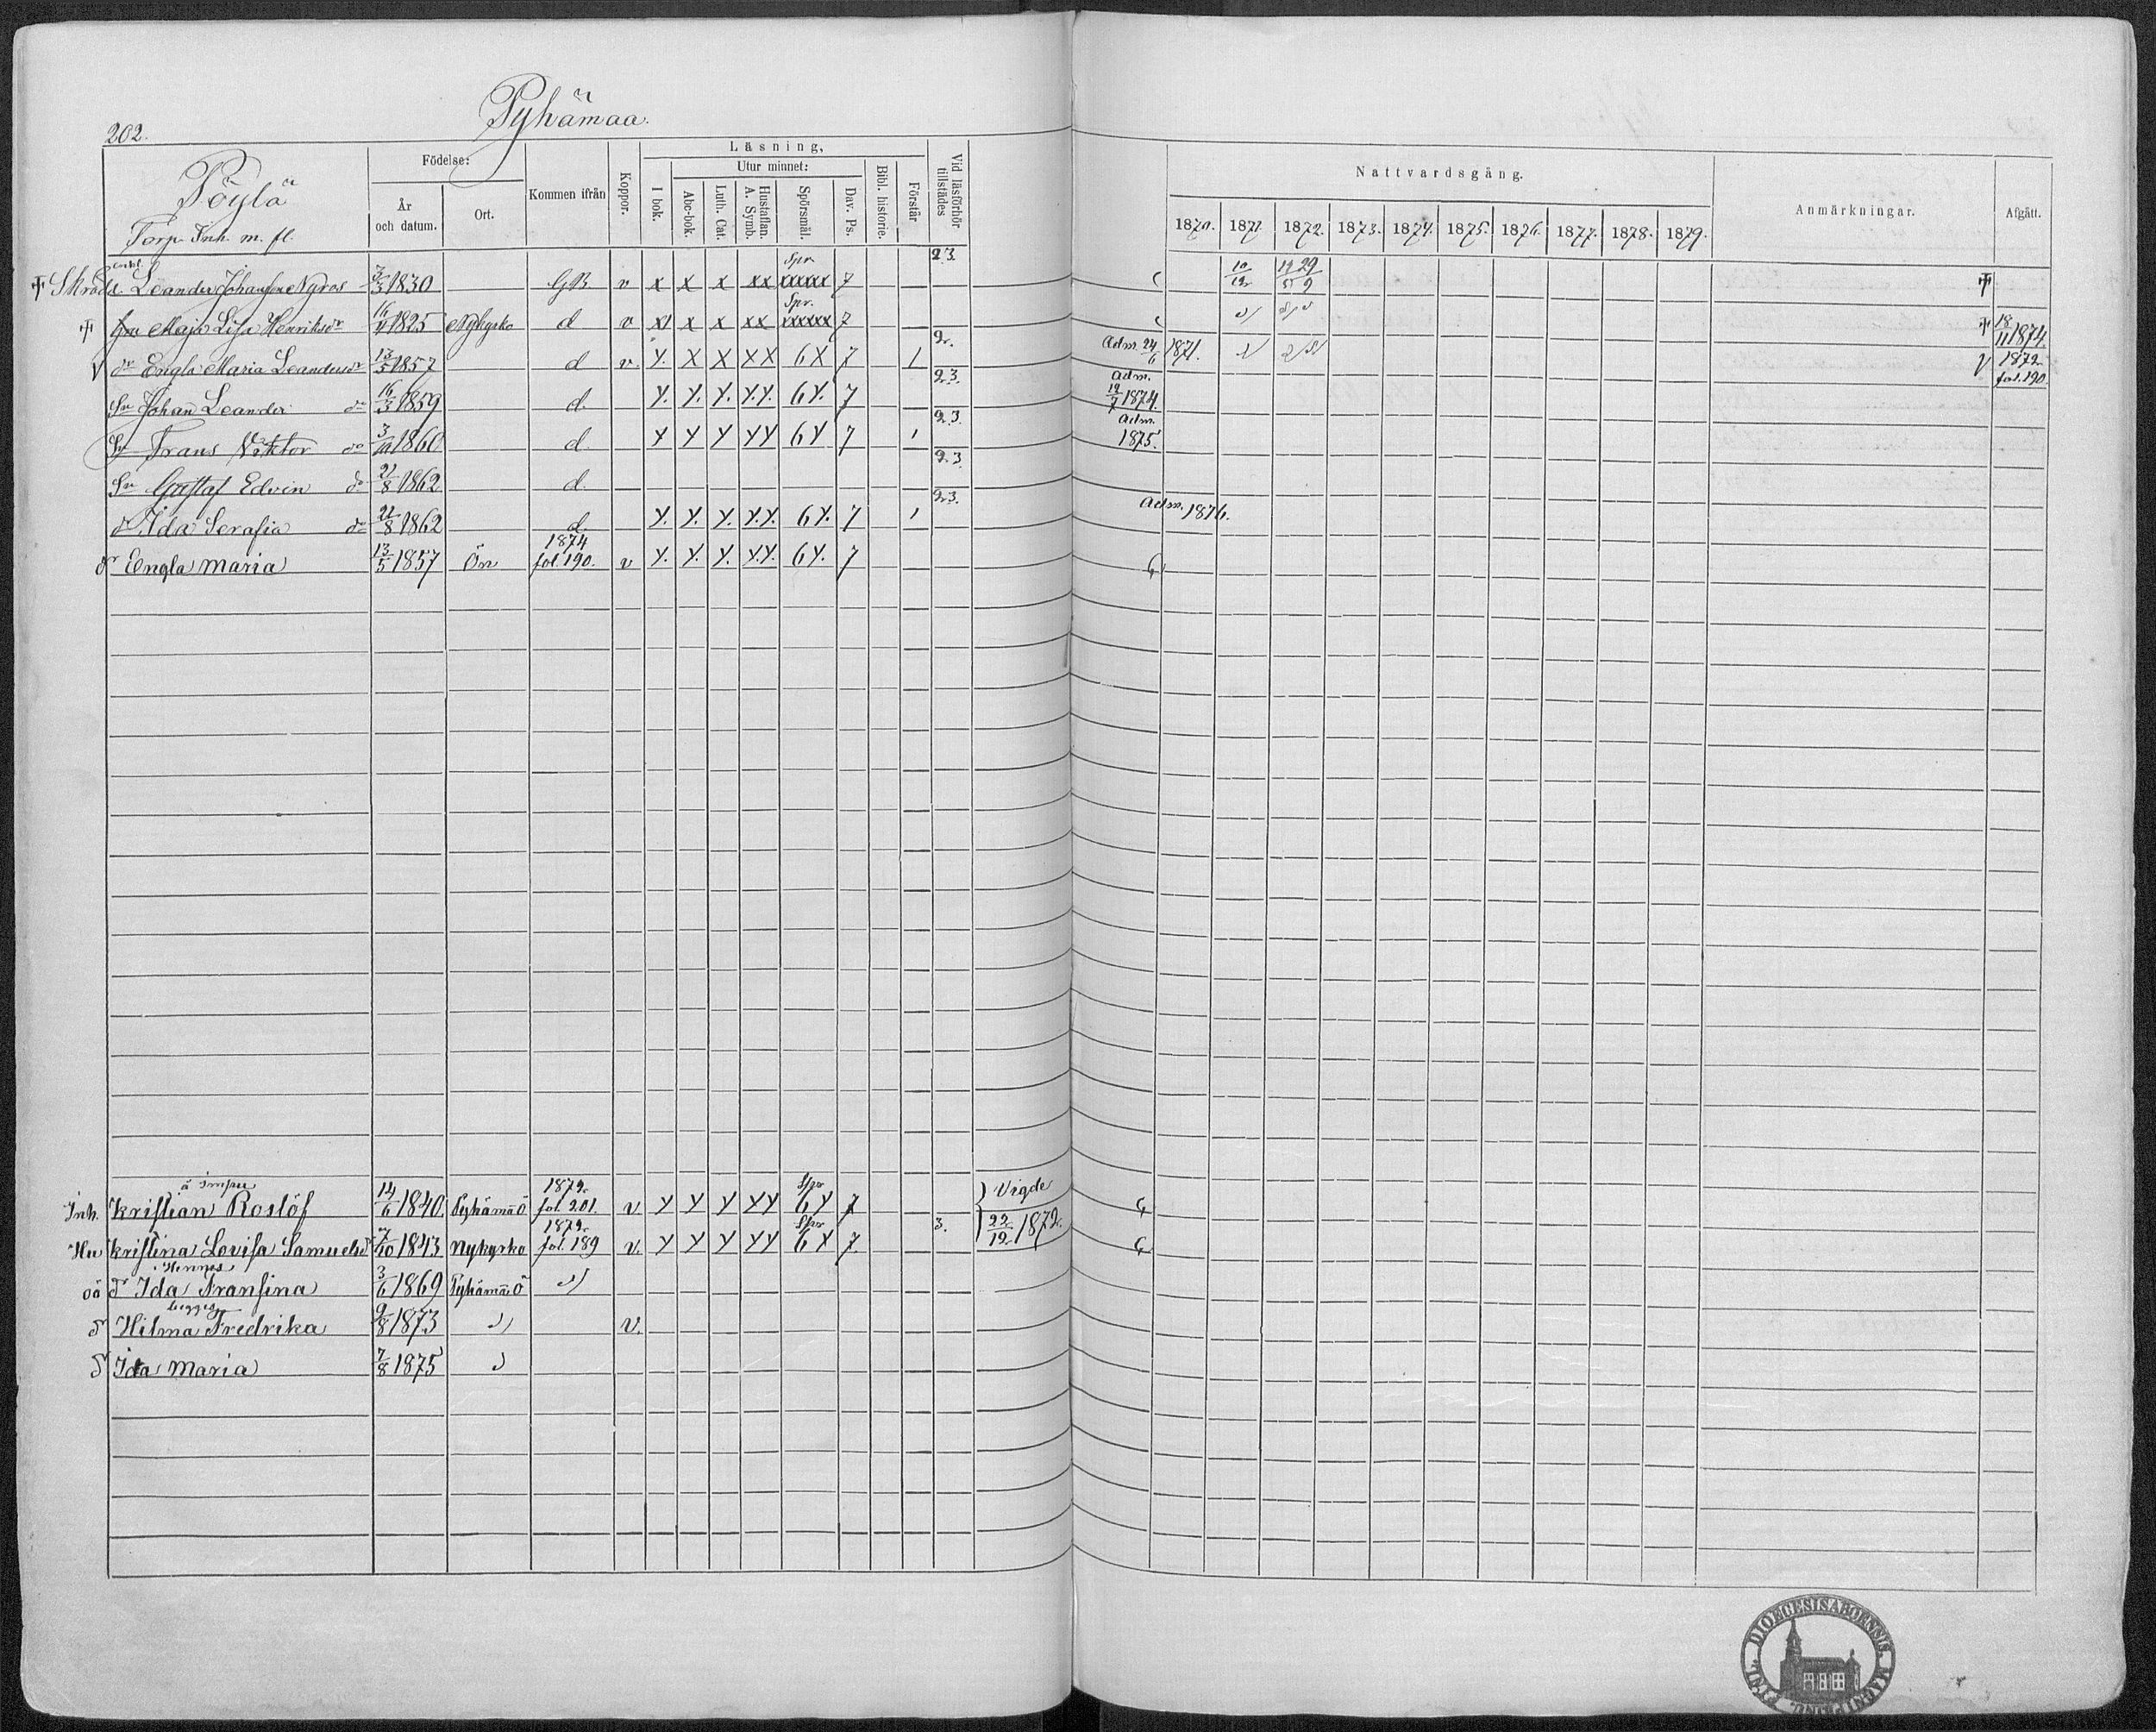 202.
Pyhämaa.
Pöylä
Torp Inh. m. fl.
Födelse:
År och datum.
Ort.
Kommen ifrån
Koppor.
Läsning,
I bok.
Utur minnet:
Abc-bok.
Luth. Cat.
Hustaflan. A. Symb.
Spörsmål.
Dav. Ps.
Bibl. historie.
Förstår
Vid läsförhör tillstädes
Nattvardsgång.
1870. 1871 1872. 1873. 1874. 1875. 1876. 1877. 1878. 1879.
Anmärkningar.
Afgått.
Leander Johansson Nyros 3/3 1830 GB. v x x x xx Spr xxxxx 7 23. 10/12 29/9
Maja Lisa Henriksdr 1825 Nykyrko d v x x x xx Spr. xxxxx 7 18/11 1874.
dr Engla Maria Leandersdr 13/5 1857 d v. Y. X X XX 6X 7 1 2. Adm. 24/6 1871. 1872 fol. 190
Sn Johan Leander do 16/3 1859 d. Y. Y. Y. Y.Y. 6Y. 7 2.3. Adm. 12/7 1874.
Sn Frans Viktor do 3/10 1860 d Y Y Y YY 6Y 7 1 2.3. Adm. 1875.
Sn Gustaf Edvin do 21/8 1862 d. 2.3
d Ida Serafia do 21/8 1862 d. Y. Y. Y. Y.Y. 6Y. 7 1 2.3. Adm. 1876.
dr Engla Maria 13/5 1857 Ön 1874 fol. 190. v Y. Y. Y. Y.Y. 6Y. 7
Inh. Kristian Roslöf 14/6 1840. Pyhämaa 1872. fol. 201. v. Y Y Y YY Spr 6Y 7 Vigde
Hu Kristina Lovisa Samuelsdr 7/10 1843 Nykyrko 1872. fol. 189 v. Y Y Y YY Spr 6Y 7. 3. 22/12 1872.
Hennes
oä d Ida Fransina 3/6 1869
begges
d Hilma Fredrika 9/8 1873 v.
d Ida Maria 7/8 1875